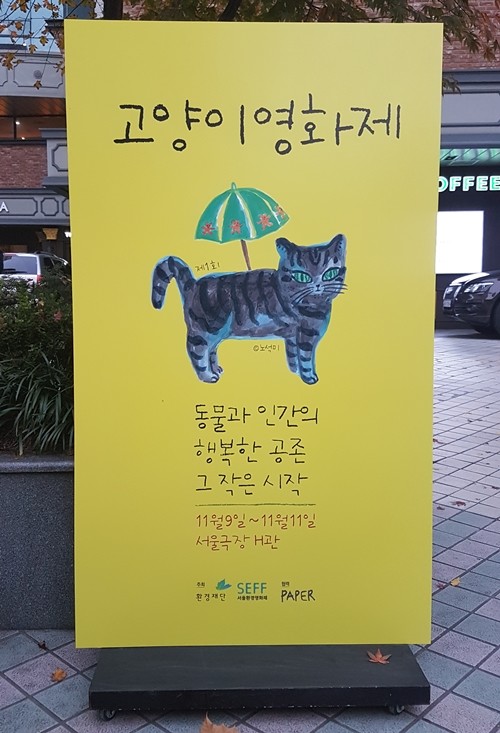 고양이영화제
제1회
©노석미
동물과 인간의
행복한 공존
그 작은 시작
11월9일~11월11일
서울극장 H관
주최
환경재단
SEFF
서울환경영화제
협력
PAPER
OFFEE
A